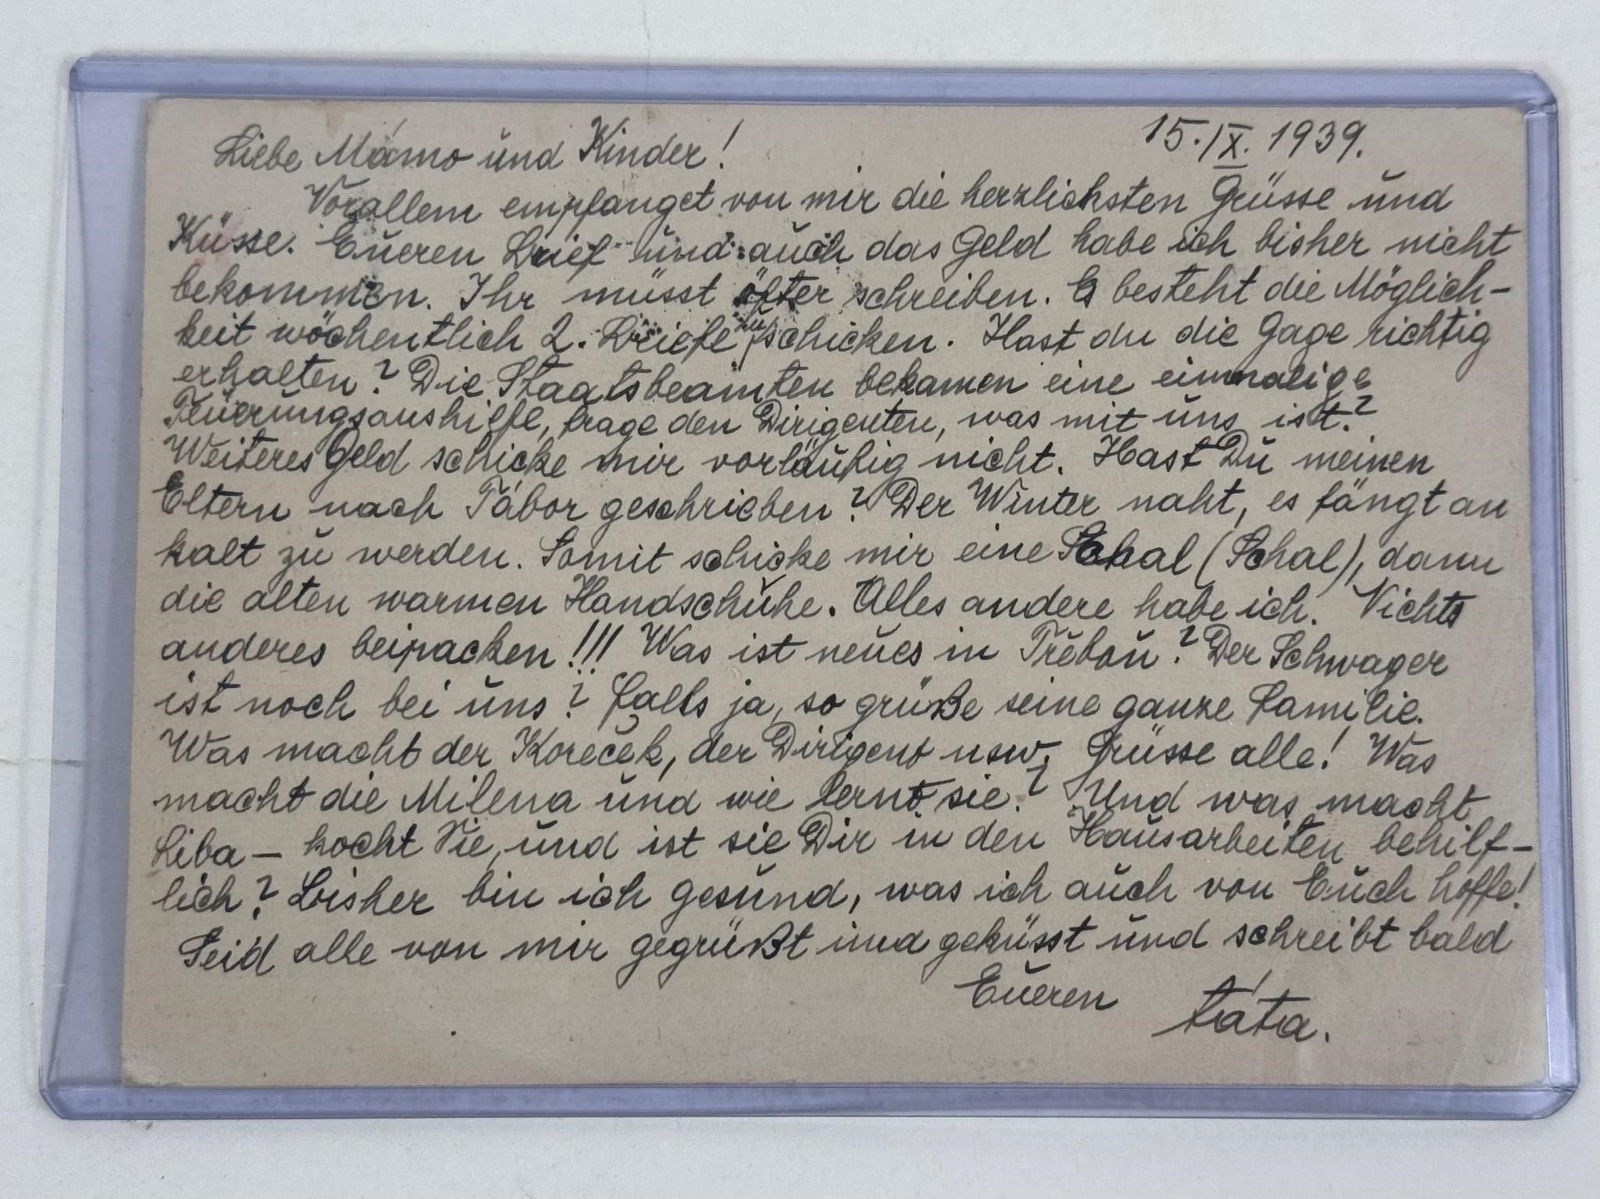 15.IX. 1939.
Liebe Mámo und Kinder!
Vorallem empfanget von mir die herzlichsten Grüsse und
Küsse. Eueren Brief und auch das Geld habe ich bisher nicht
bekommen. Ihr müsst öfter schreiben. Es besteht die Möglich-
keit wöchentlich 2. Briefe zu schicken. Hast du die Gage richtig
erhalten? Die Staatsbeamten bekamen eine einmalige
Teuerungsaushilfe, frage den Dirigenten, was mit uns ist?
Weiteres Geld schicke mir vorläufig nicht. Hast Du meinen
Eltern nach Tábor geschrieben? Der Winter naht, es fängt an
kalt zu werden. Somit schicke mir eine Schal (Schal), dann
die alten warmen Handschuhe. Alles andere habe ich. Nichts
anderes beipacken!!! Was ist neues in Třeboň? Der Schwager
ist noch bei uns? Falls ja, so grüße seine ganze Familie.
Was macht der Koreček, der Dirigent usw. Grüsse alle! Was
macht die Milena und wie lernt sie? Und was macht
Liba – kocht Sie, und ist sie Dir in den Hausarbeiten behilf-
lich? Bisher bin ich gesund, was ich auch von Euch hoffe!
Seid alle von mir gegrüßt und geküsst und schreibt bald
Eueren táta.